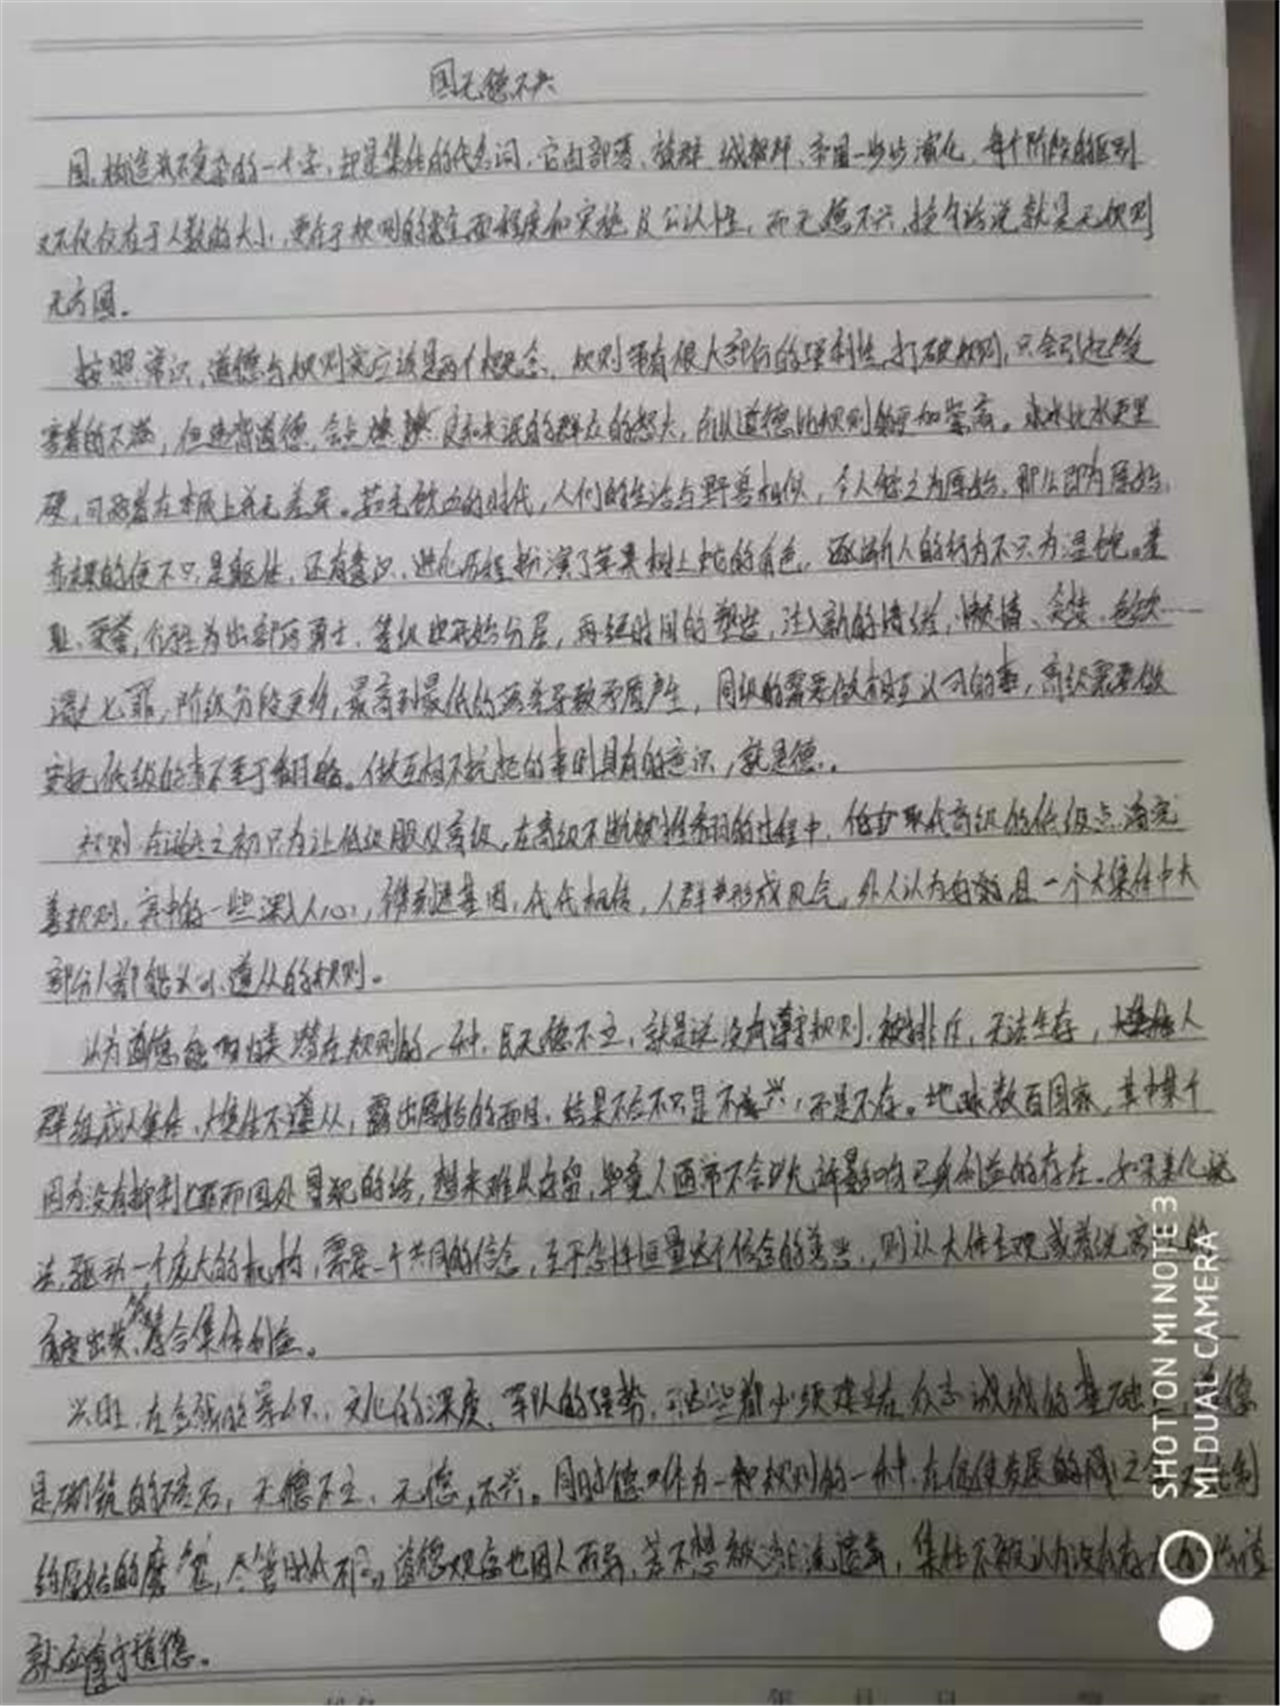 国无德不兴
国,构造并不复杂的一个字,却是集体的代名词,它由部落、族群、城邦、帝国一步步演化,每个阶段的区别
又不仅仅在于人数的大小,更在于规则的全面程度和实施及公认性,而无德不兴,换句话说就是无规则
无方圆。
按照常识,道德与规则应该是两个概念,规则带有很大部份的强制性,打破规则,只会引起
害者的不满,但违背道德,会点燃的群众的怒火,所以道德比规则更加崇高。冰比水更坚
硬,可两者在本质上并无差异。茹毛饮血的时代,人们的生活与野兽相似,今人称之为原始,那么即为原始,
赤裸的便不只是躯体,还有意识,进化历程扮演了苹果树上蛇的角色,逐渐人的行为不只为温饱。羞
耻、荣誉,衍生出部落勇士,等级也开始分层,再经时间的塑造,注入新的情绪,懒惰、贪婪、色欲
七罪,阶级分段更多,最高到最低的落差导致矛盾产生,同级的需要做相互认可的事,高级需要做
安抚低级的事不至于。做互相不抗拒的事时具有的意识,就是德。
规则在诞生之初只为让低级服从高级,在高级不断被推翻的过程中,取代高级的低级点滴完
善规则,其中的一些深入人心,镌刻进基因,代代相传,人群中形成风气,外人认为且一个大集体中大
部分人都能认可、遵从的规则。
认为道德潜在规则的一种,民无德不立,就是说没有遵守规则,被排斥,无法生存,人
群组成大集体,大集体不遵从,露出原始的面目,结果不只是不兴,而是不存。地球数百国家,其中某个
因为没有抑制七罪而四处冒犯的话,想来难以存留,毕竟人通常不会允许影响己身利益的存在。如果美化说
法,驱动一个庞大的机构,需要一个共同的信念,至于怎样衡量这个信念的善恶,则从大体主观或者说
角度出发,符合集体利益。
兴旺,在金钱的累积,文化的深度,军队的强势,这些都必须建立在众志成城的基础上,德
是砌筑的砖石,无德不立,无德,不兴。同时德作为一种规则的一种,在促使发展的同时
约原始的魔鬼,尽管时代不同,道德观念也因人而异,若不想被潮流遗弃,集体不被认为没有存在的价值
就应遵守道德。
SHOT ON MI NOTE 3
MI DUAL CAMERA